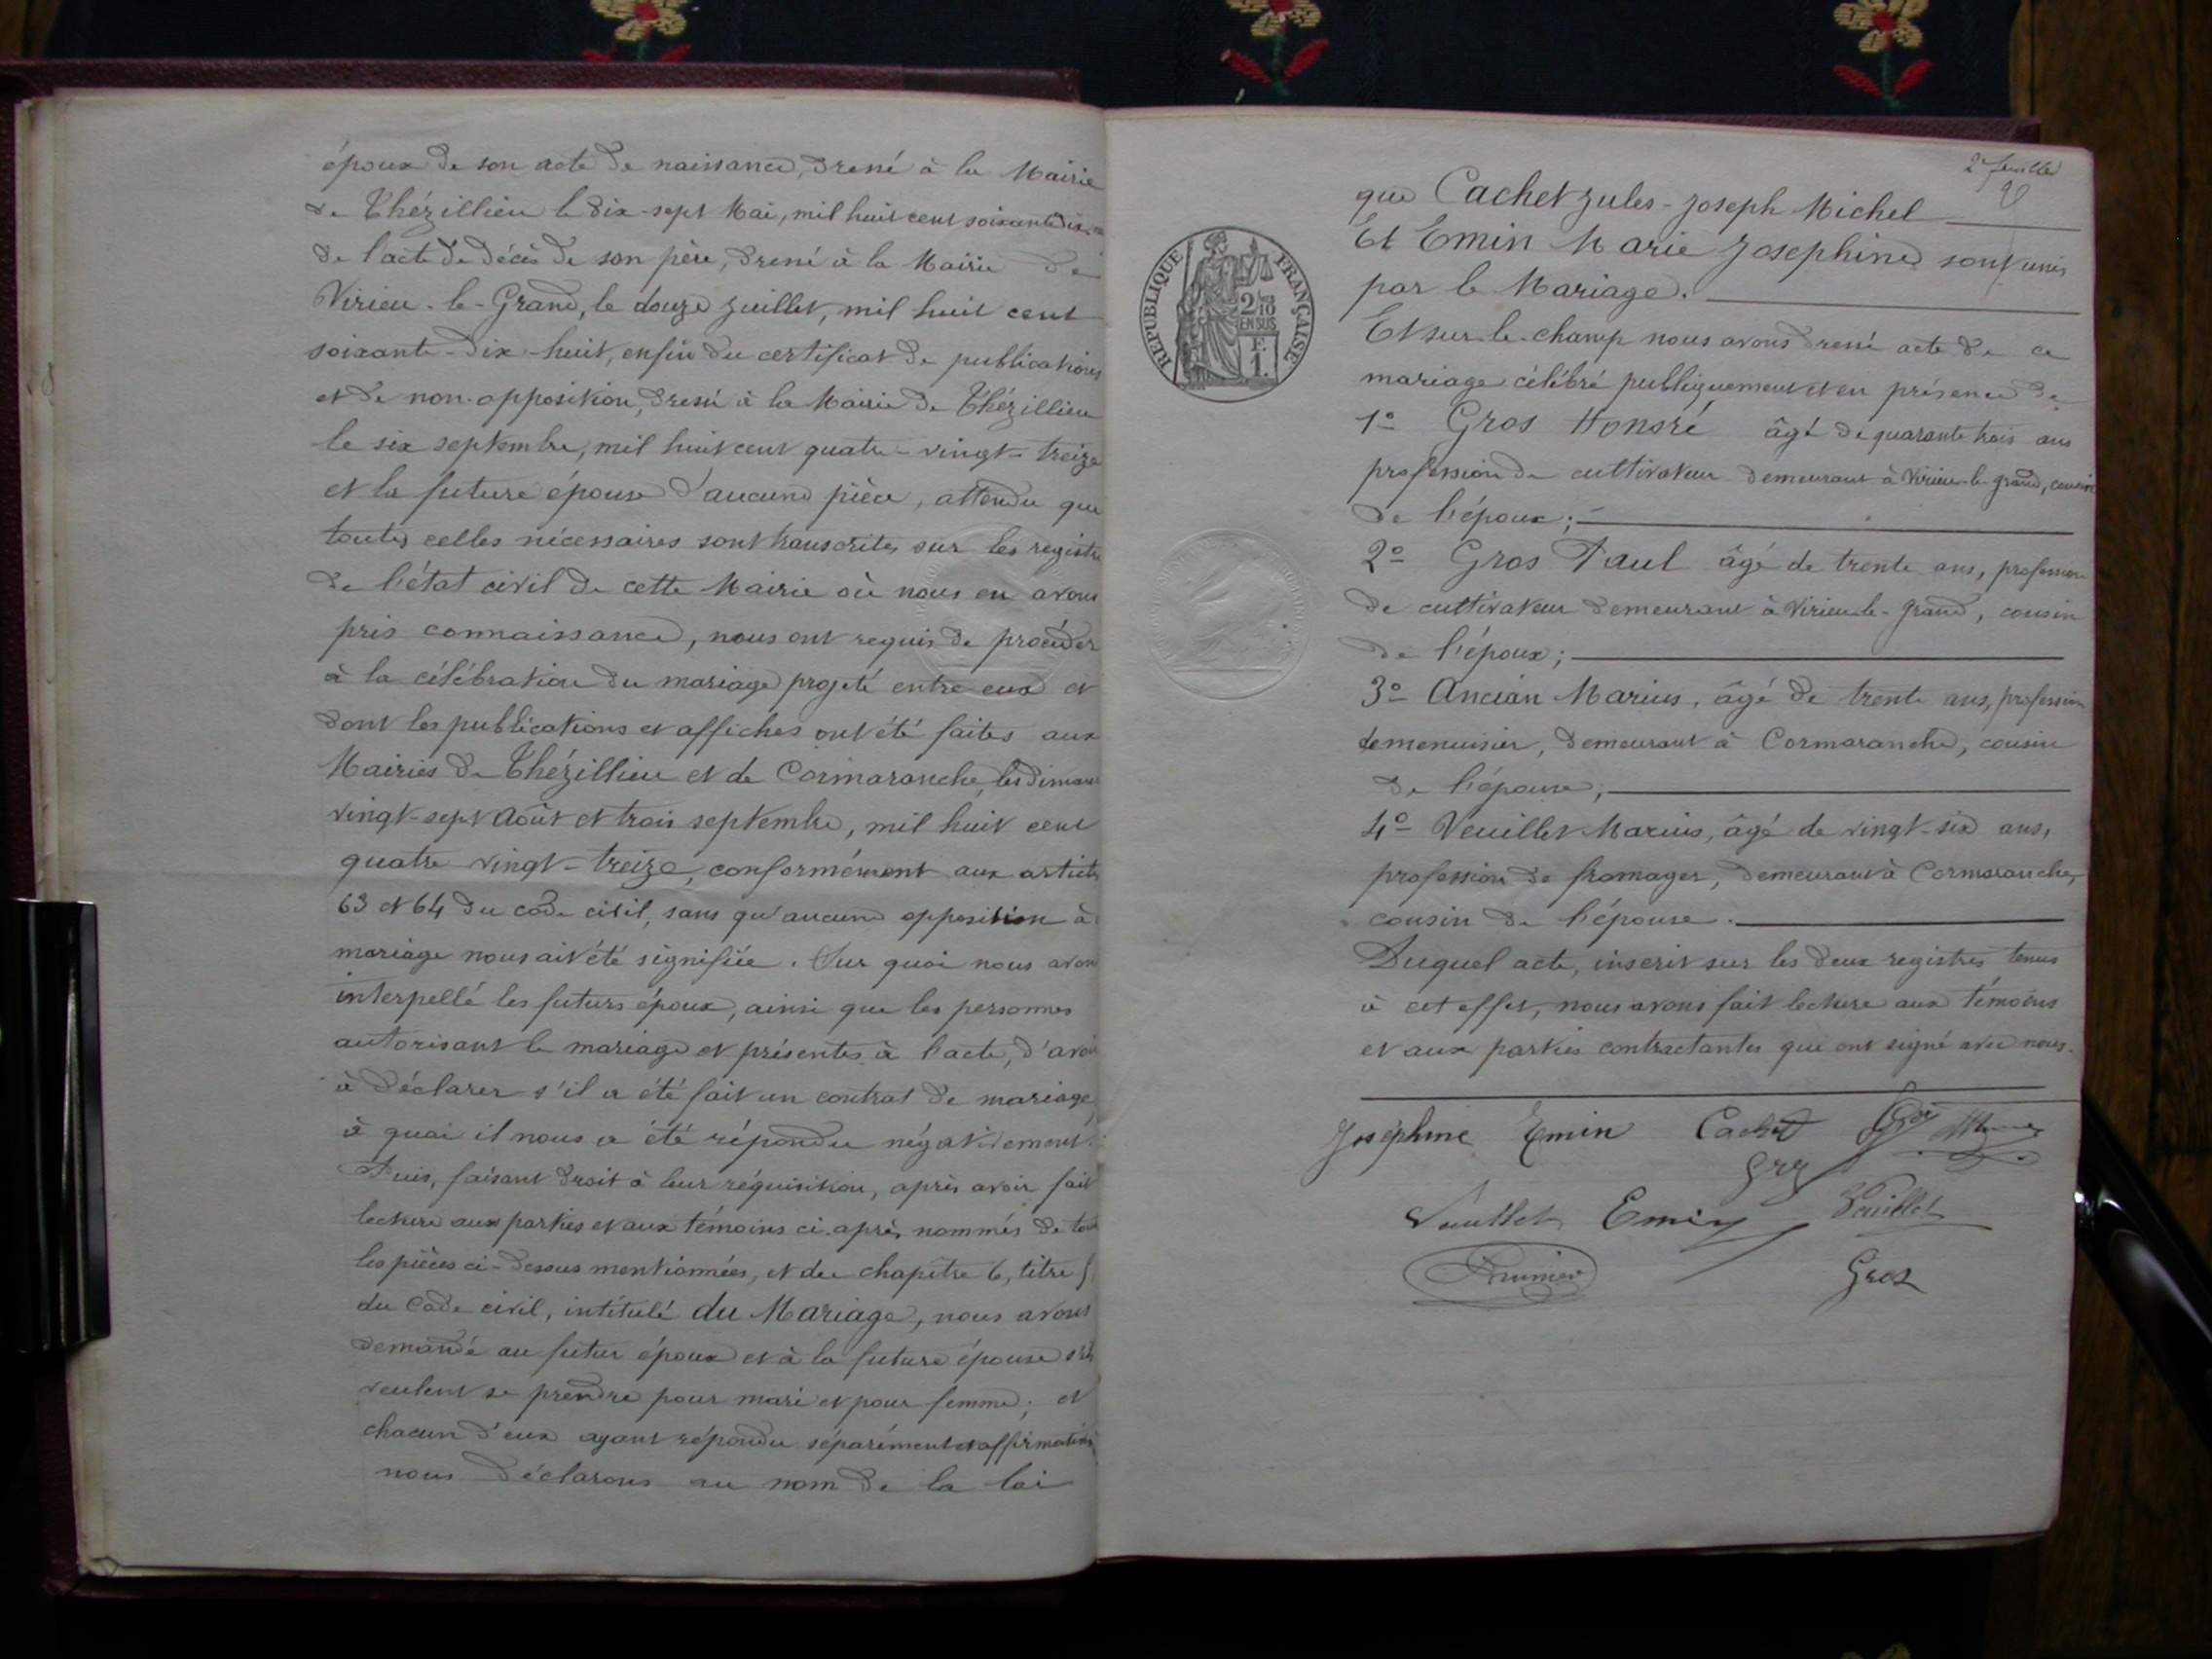 époux de son acte de naissance, dressé à la Mairie
de Thézillieu le dix-sept Mai, mil huit cent soixante dix
de l'acte de décès de son père, dressé à la Mairie de
Virieu-le-Grand, le douze juillet, mil huit cent
soixante-dix-huit, enfin du certificat de publications
et de non-opposition, dressé à la Mairie de Thézillieu
le six septembre, mil huit cent quatre-vingt-treize
et la future épouse d'aucune pièce, attendu que
toutes celles nécessaires sont transcrites sur les registre
de l'état civil de cette Mairie où nous en avons
pris connaissance, nous ont requis de procéder
à la célébration du mariage projeté entre eux et
dont les publications et affiches ont été faites aux
Mairies de Thézillieu et de Cormaranche, les diman
vingt-sept Août et trois septembre, mil huit cent
quatre vingt-treize, conformément aux articles
63 et 64 du code civil, sans qu'aucune opposition à
mariage nous ait été signifiée. Sur quoi nous avon
interpellé les futurs époux, ainsi que les personnes
autorisant le mariage et présentes à l'acte, d'avoir
à déclarer s'il a été fait un contrat de mariage,
à quoi il nous a été répondu négativement.
Puis, faisant droit à leur réquisition, après avoir fait
lecture aux parties et aux témoins ci-après nommés de
les pièces ci-dessus mentionnées, et du chapitre 6, titre 5
du Code civil, intitulé du Mariage, nous avons
demandé au futur époux et à la future épouse s'ils
veulent se prendre pour mari et pour femme; et
chacun d'eux ayant répondu séparément et affirmativ
nous déclarons au nom de la loi
2e feuillet
que Cachet Jules-Joseph Michel
Et Emin Marie Josephine sont unis
par le Mariage.
Et sur-le-champ nous avons dressé acte de ce
mariage célébré publiquement et en présence de
1° Gros Honoré âgé de quarante trois ans
profession de cultivateur demeurant à Virieu-le-grand, cousin
de l'époux;
2° Gros Paul âgé de trente ans, profession
de cultivateur demeurant à Virieu-le-grand, cousin
de l'époux;
3° Ancian Marius, âgé de trente ans, profession
de menuisier, demeurant à Cormaranche, cousin
de l'épouse;
4° Veuillet Marius, âgé de vingt-six ans,
profession de fromager, demeurant à Cormaranche,
cousin de l'épouse.
Duquel acte, inscrit sur les deux registres tenus
à cet effet, nous avons fait lecture aux témoins
et aux parties contractantes qui ont signé avec nous.
REPUBLIQUE FRANÇAISE
2/10
EN SUS
F.
1.
Joséphine Emin Cachet
Veuillet Emin Veuillet
Gros